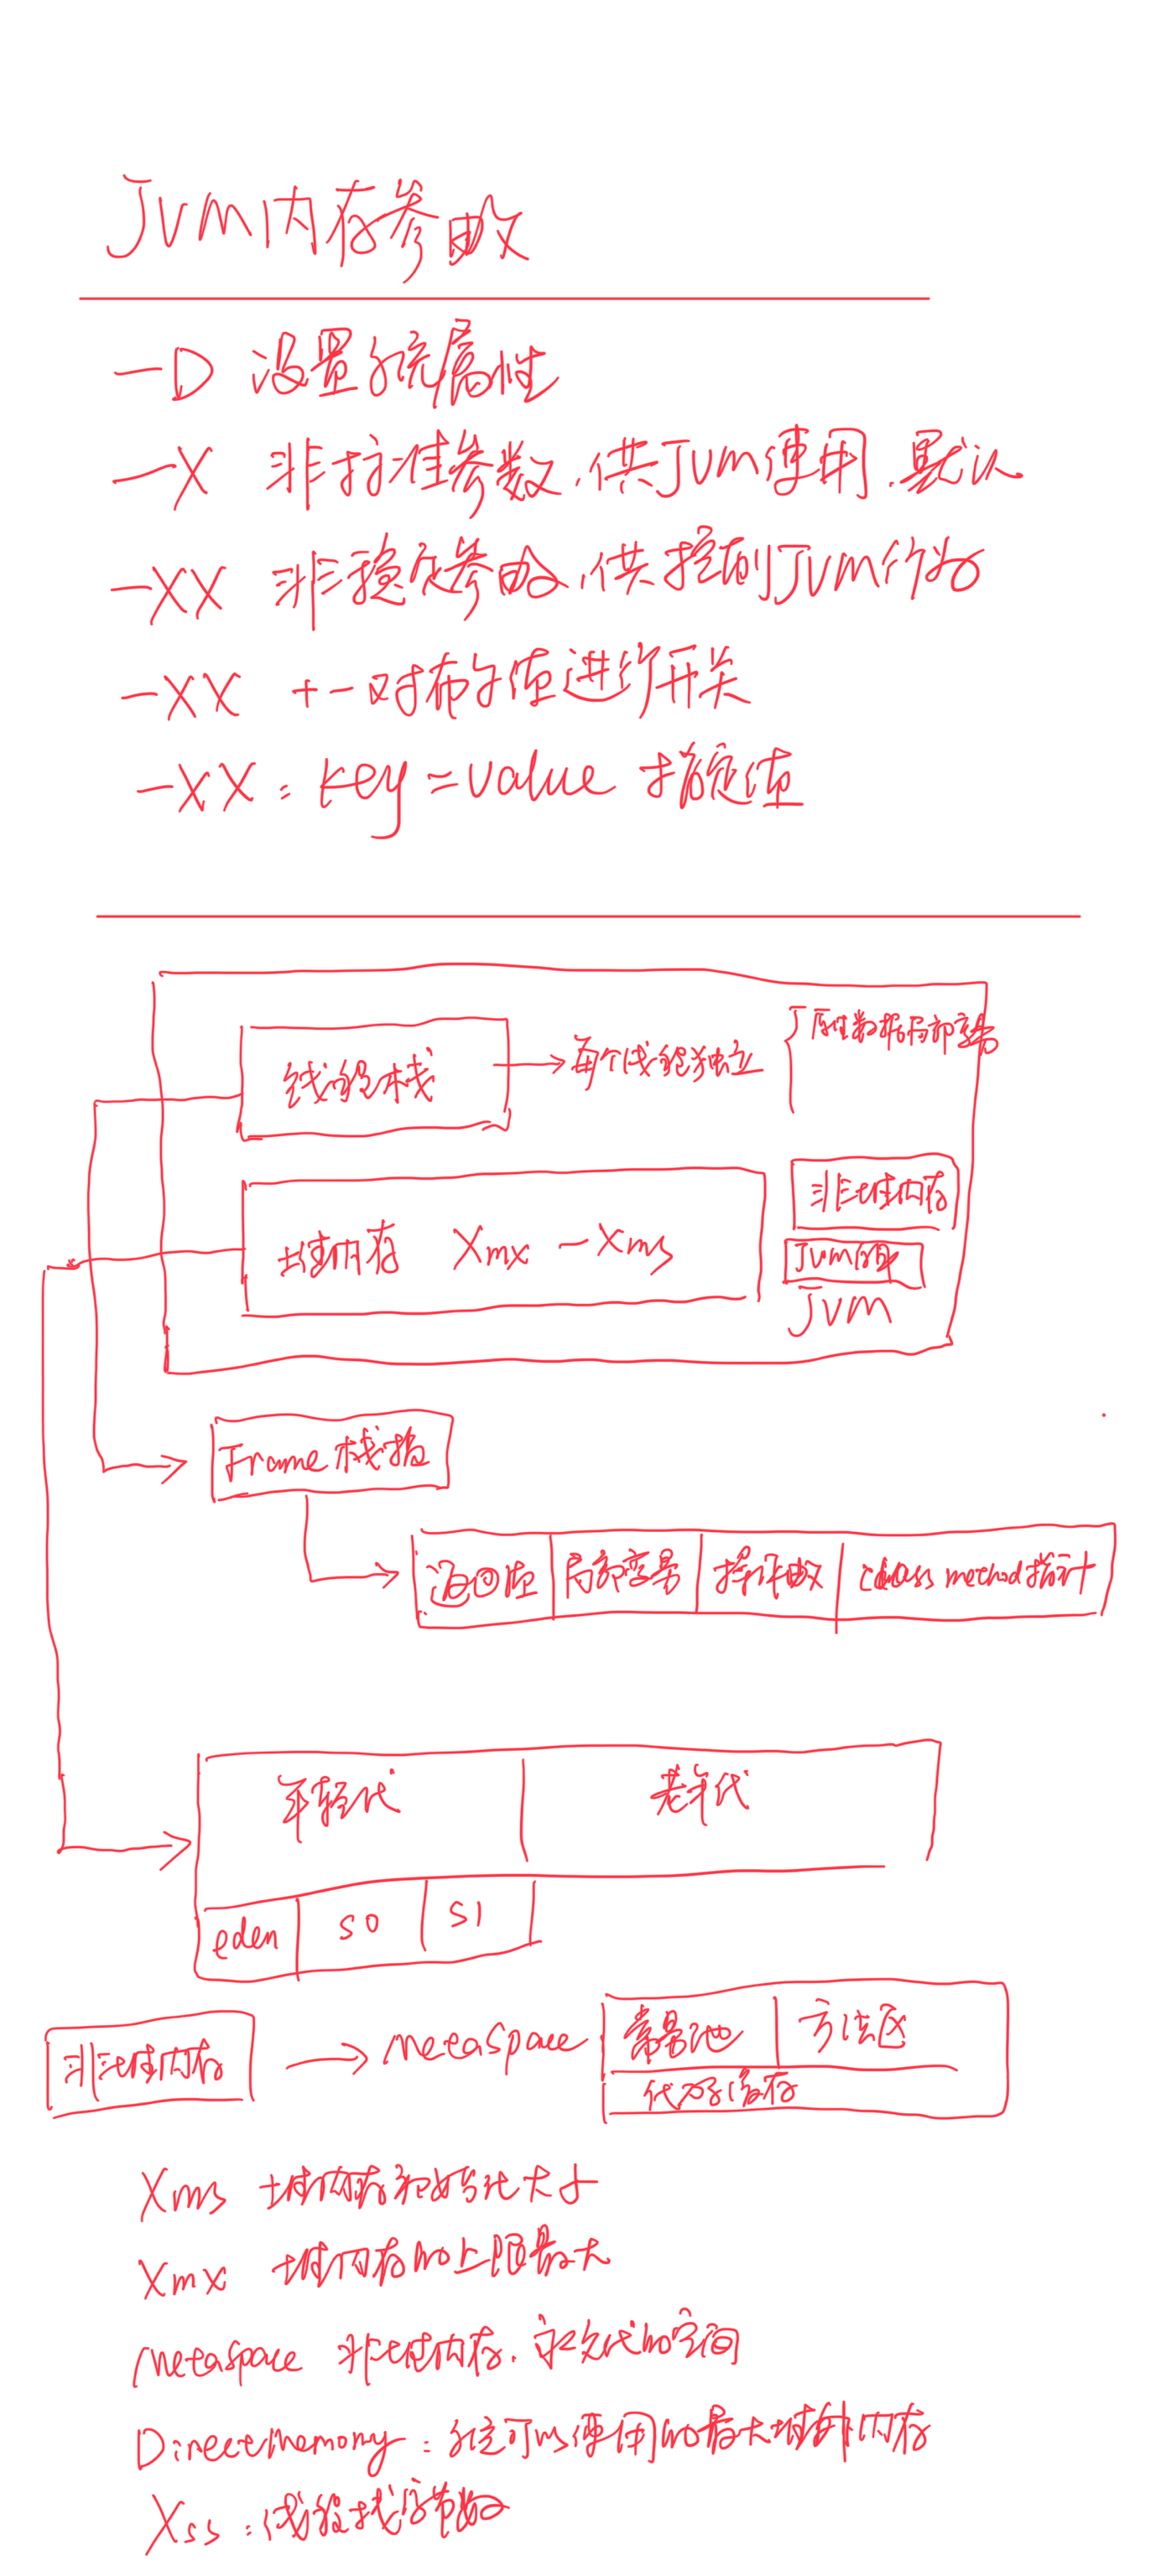 JVM内存参数
-D 设置系统属性
-X 非标准参数，供JVM使用，默认
-XX 非稳定参数，供控制JVM行为
-XX +- 对布尔值进行开关
-XX：key=value 指定值
线程栈
每个线程独立
原生数据局部变量
堆内存 Xmx -Xms
非堆内存
JVM
JVM
Frame 栈帧
返回值 局部变量 操作数 class method指针
年轻代 老年代
eden S0 S1
非堆内存
metaspace
常量池 方法区
代码缓存
Xms 堆内存初始化大小
Xmx 堆内存的上限最大
metaspace 非堆内存，永久代的空间
DirectMemory：系统可以使用的最大堆外内存
Xss：线程栈字节数